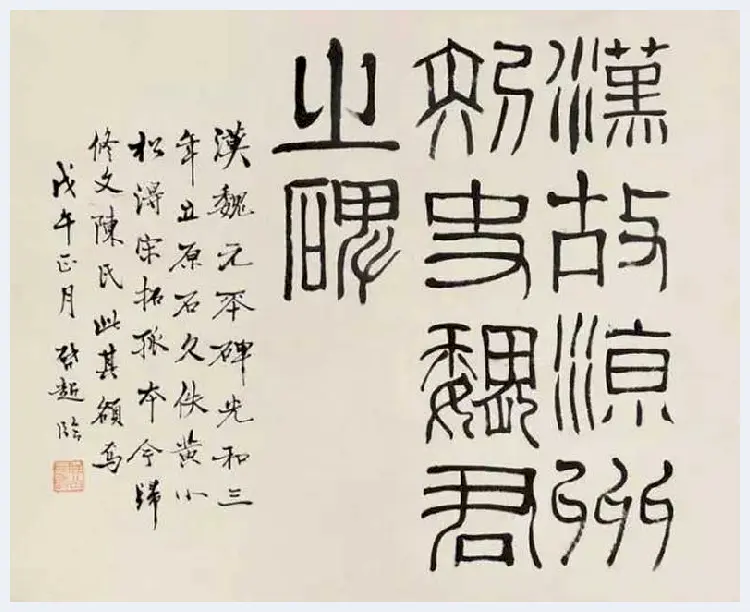 漢故涼州
刺史魏君
之碑
漢魏元丕碑光和三
年立原石久佚黄小
松淂宋拓孤本今歸
修文陳氏此其額焉
戊午正月 啓超臨